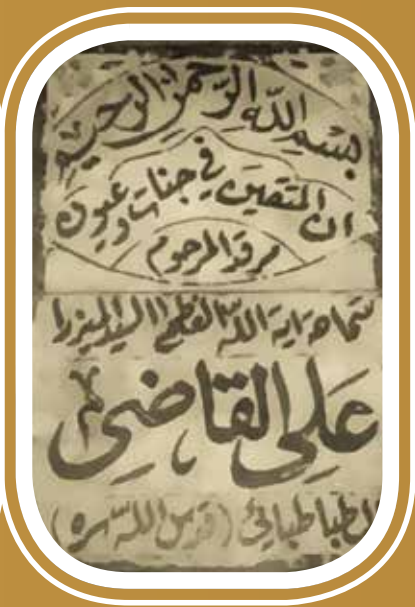 بسم الله الرحمن الرحيم
ان المتقين في جنات وعيون
مرقد المرحوم
سماحة اية الله العظمى السيد الميرزا
علي القاضي
الطباطبائي (قدس الله سره)